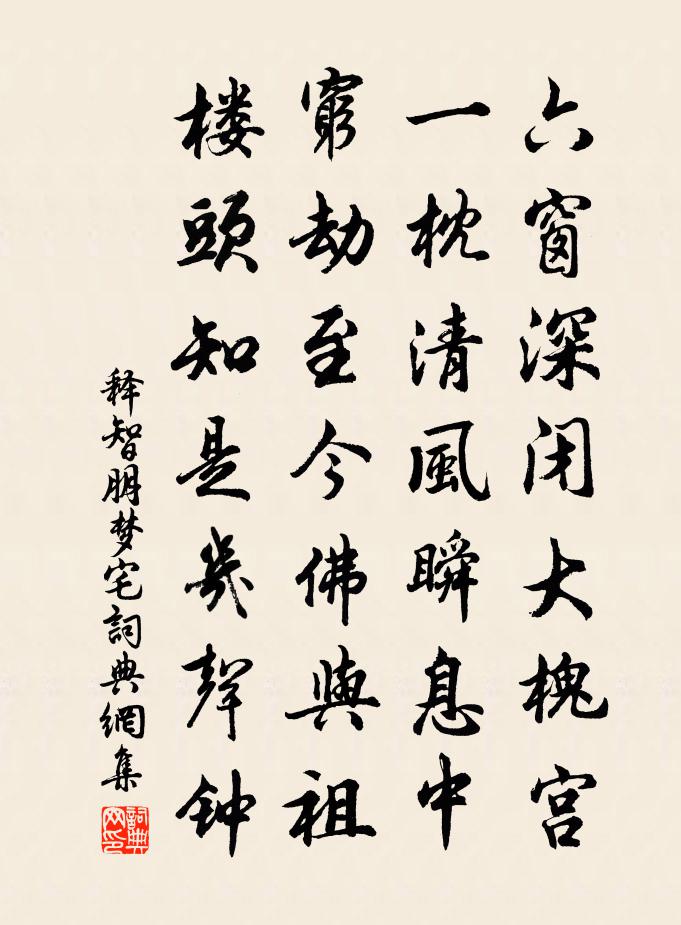 六窗深闭大槐宫
一枕清風瞬息中
窮劫至今佛與祖
楼頭知是幾聲钟
释智朋梦宅詞典網集
詞典网印